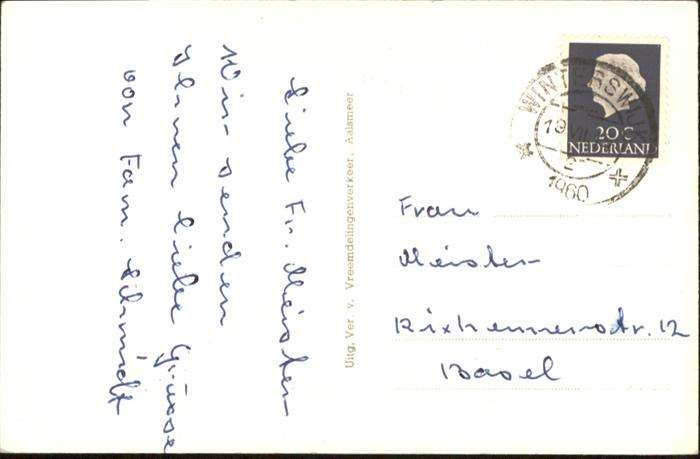 Liebe Fr. Meister
Wir senden
Ihnen liebe Grüsse
von Fam. Schmidt
Uitg. Ver v. Vreemdelingenverkeer, Aalsmeer
WINTERSWIJK
1960
20 C
NEDERLAND
Frau
Meister
12
Basel